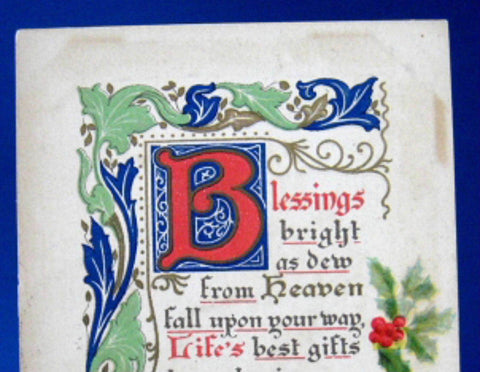 Blessings
bright
as dew
from Heaven
fall upon your way,
Life's best gifts